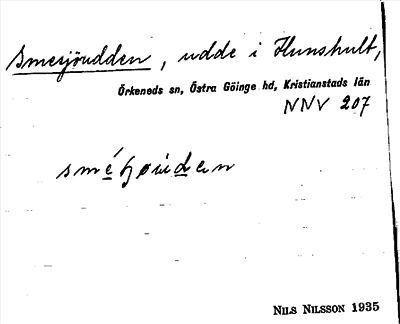 Smesjöudden, udde i Hunshult,
Örkeneds sn, Östra Göinge hd, Kristianstads län
NNV 207
NILS NILSSON 1935